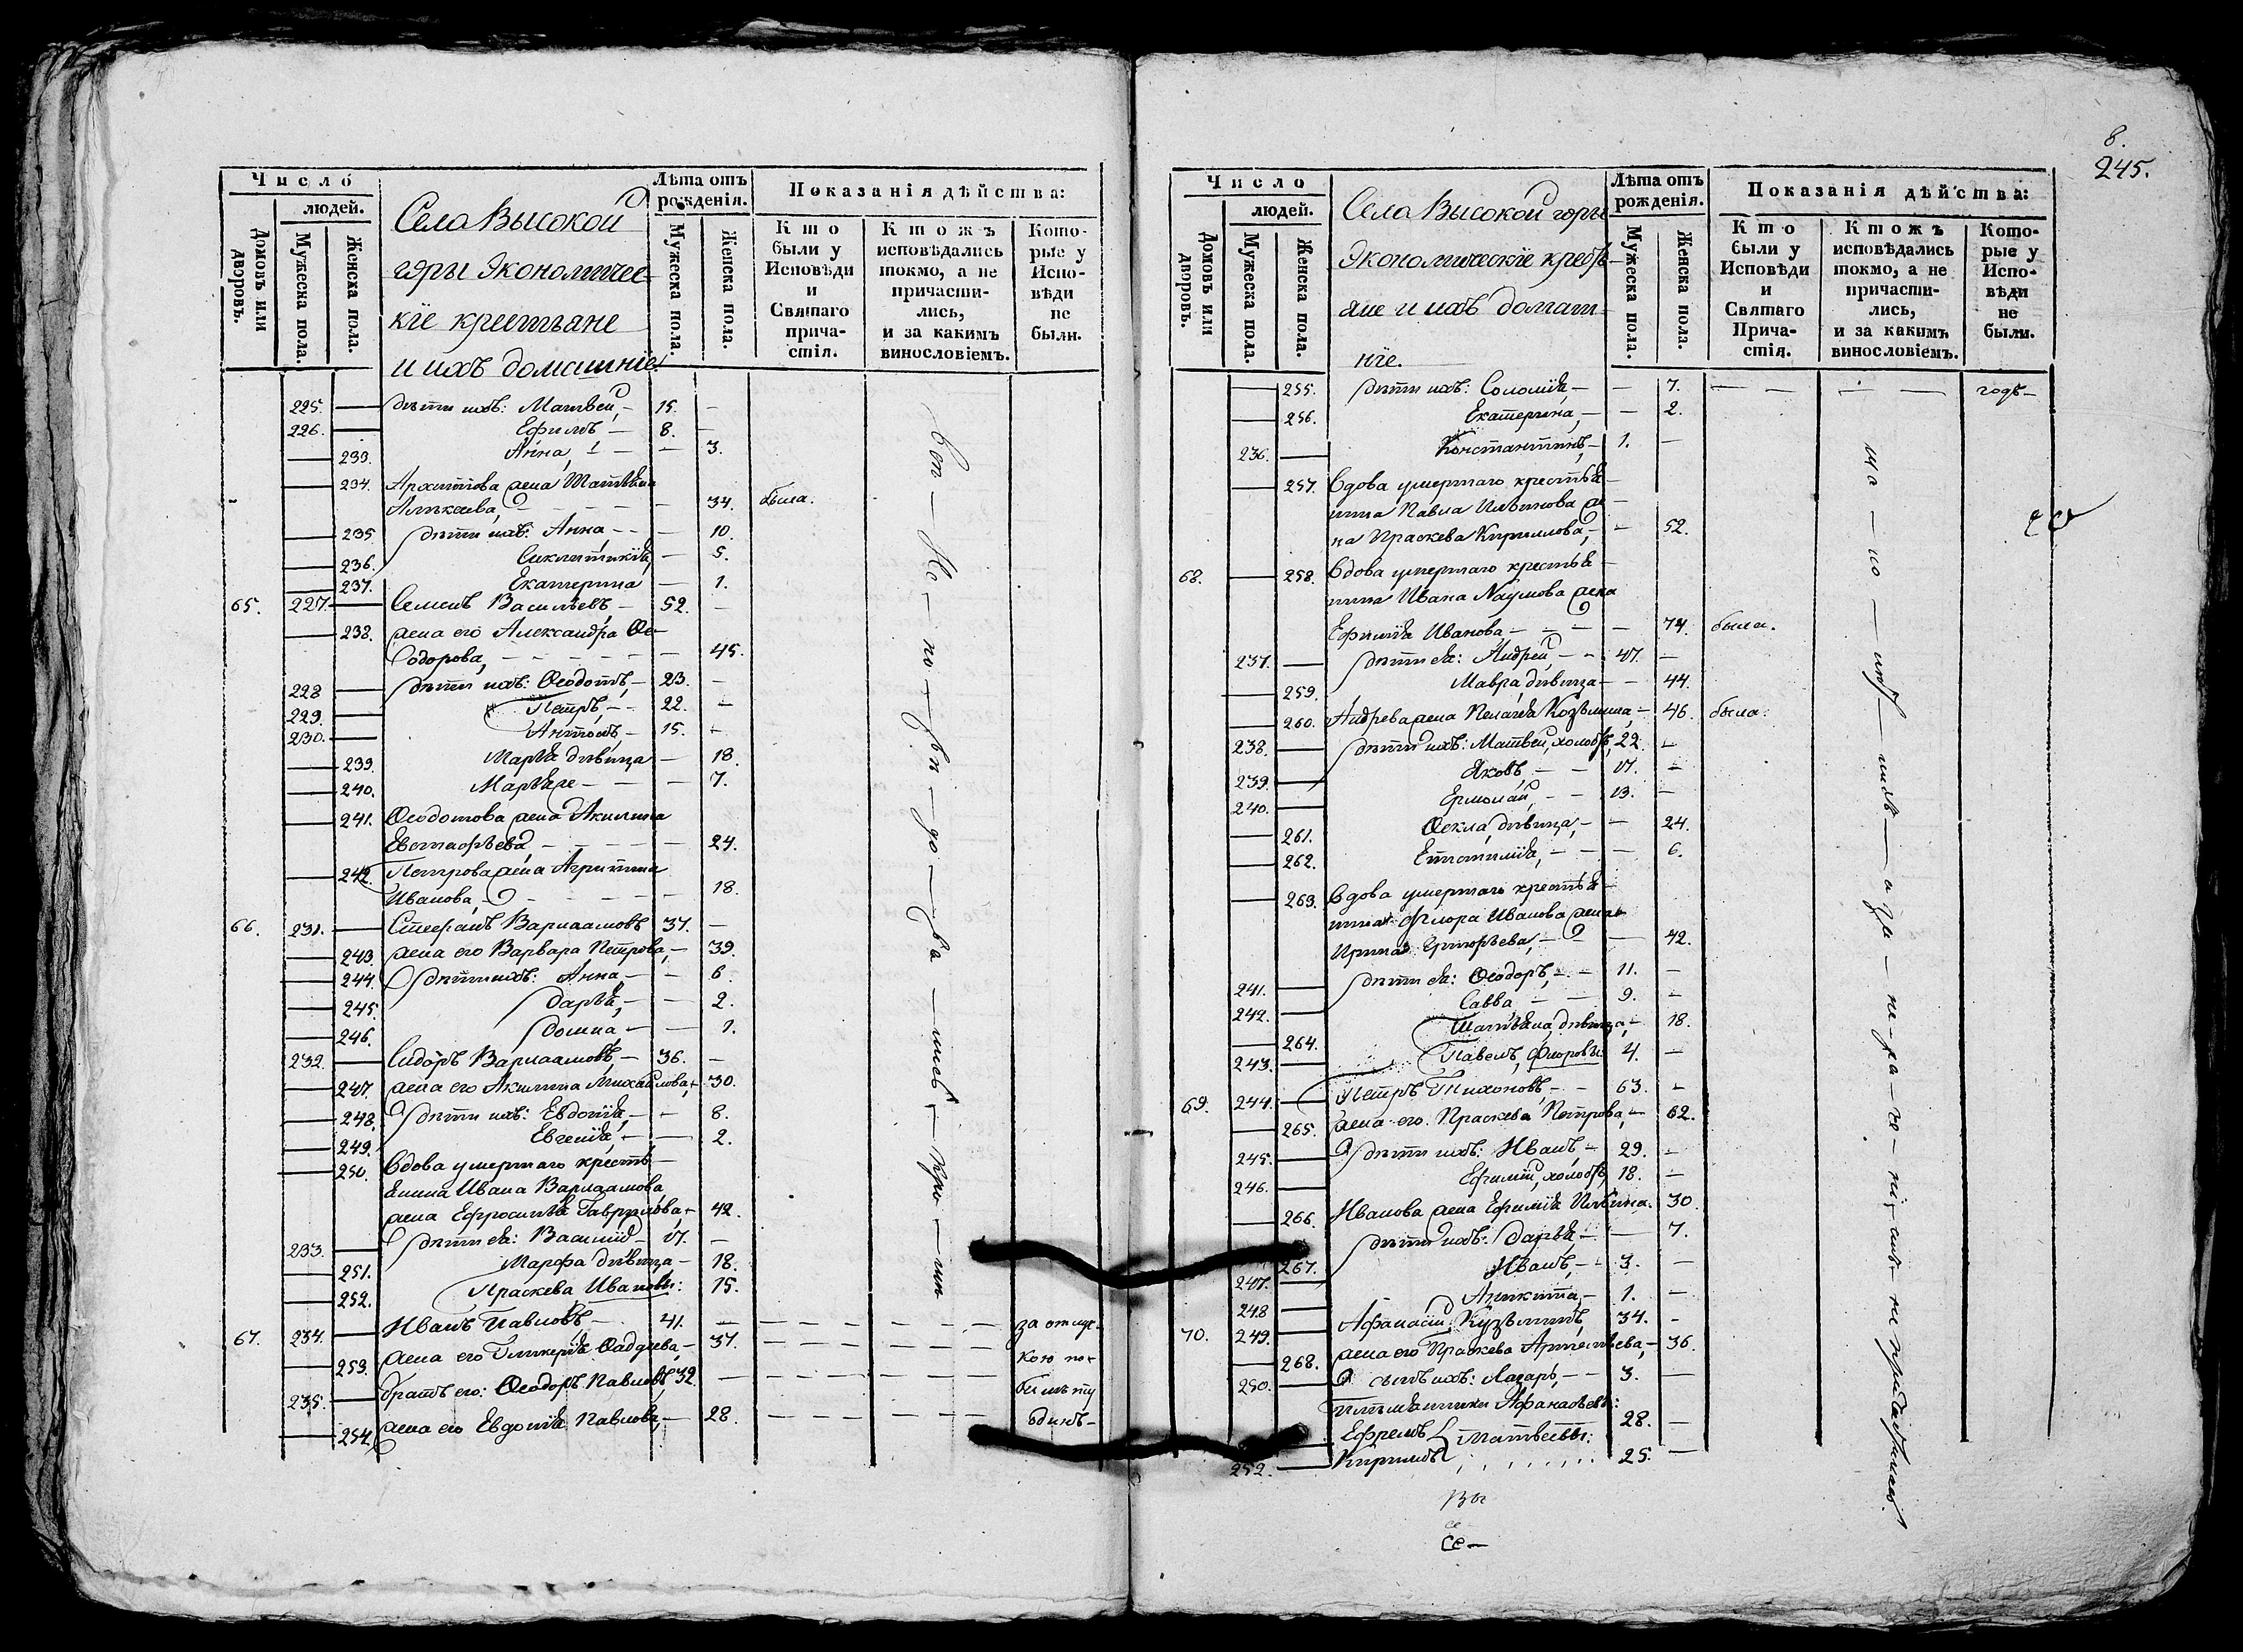 Число
людей.
Домовъ или дворовъ.
Мужеска пола.
Женска пола.
Села Высокой
горы Экономичес-
кіе крестьяне
и ихъ домашніе
Лѣта отъ рожденія.
Мужеска пола.
Женска пола.
Показанія дѣйства:
Кто были у Исповѣди и Святаго причастія.
Ктожъ исповѣдались токмо, а не причастились, и за какимъ винословіемъ.
Которые у Исповѣди не были.
225. — дѣти ихъ: Матвей, — 15. —
226. — Ефимъ — 8. —
— 233. Анна, — — 3.
— 234. Архиппова жена Татьяна
— 34. была.
— 235. дѣти ихъ: Анна, — — 10.
— 236. Синклитикія — 5.
— 237. Екатерина — 1.
65. 227. — Семенъ Васильевъ — 52. —
— 238. жена его Александра Ѳе-
одорова, — — — 45.
228. — дѣти ихъ: Ѳеодотъ, — 23. —
229. — Петръ, — 22. —
230. — Антонъ, — 15. —
— 239. Марья дѣвица — 18.
— 240. Марья же — — 7.
— 241. Ѳеодотова жена Акилина
Евстафьева, — — — 24.
— 242. Петрова жена Агрипина
Иванова, — — — 18.
66. 231. — Стефанъ Варлаамовъ 37. —
— 243. жена его Варвара Петрова, — 39.
— 244. дѣти ихъ: Анна, — — 6.
— 245. Дарья, — — 2.
— 246. Домна, — — 1.
232. — Сидоръ Варлаамовъ, — 36. —
— 247. жена его Акилина Михайлова, — 30.
— 248. дѣти ихъ: Евдокія, — — 8.
— 249. Евгенія, — — 2.
— 250. Вдова умершаго кресть-
янина Ивана Варлаамова
жена Ефросинья Гаврилова, — 42.
233. — дѣти ея: Василій — 17. —
— 251. Марфа дѣвица — 18.
— 252. Праскева Ивановы: 15.
67. 234. — Иванъ Павловъ — 41. — — — за отлуч-
— 253. жена его Гликерія Ѳаддеева, — 37. — — — кою по-
235. — братъ его: Ѳеодоръ Павловъ 32. — — — билету
— 254. жена его Евдокія Павлова, — 28. — — — одинъ-
8.
245.
Число
людей.
Домовъ или дворовъ.
Мужеска пола.
Женска пола.
Села Высокой горы
Экономическіе кресть-
яне и ихъ домаш-
ніе.
Лѣта отъ рожденія.
Мужеска пола.
Женска пола.
Показанія дѣйства:
Кто были у Исповѣди и Святаго Причастія.
Ктожъ исповѣдались токмо, а не причастились, и за какимъ винословіемъ.
Которые у Исповѣди не были.
— 255. дѣти ихъ: Соломія, — — 7. — — — годъ —
— 256. Екатерина, — — 2.
236. — Константинъ, — 1. —
— 257. Вдова умершаго крестья-
нина Павла же-
на Праскева Кириллова, — — 52.
68. — 258. Вдова умершаго крестья-
нина Ивана Наумова жена
Ефимія Иванова, — — — 74. была.
237. — дѣти ея: Андрей, — — 47. —
— 259. Мавра, дѣвица — — 44.
— 260. Андреева жена Пелагея Козьмина, — 46. была.
238. — дѣти ихъ: Матвей, холостъ, 22. —
239. — Яковъ, — — 17. —
240. — Ермолай, — — 13. —
— 261. Ѳекла, дѣвица, — — 24.
— 262. — — 6.
— 263. Вдова умершаго крестья-
нина Флора Иванова жена
Ирина Григорьева, — — 42.
241. — дѣти ея: Ѳеодоръ, — — 11. —
242. — Савва — — 9. —
— 264. Татьяна, дѣвица, — 18.
243. — Павелъ, Флоровы: 4. —
69. 244. — Петръ Тихоновъ, — — 63. —
— 265. жена его Праскева Петрова, — 62.
245. — дѣти ихъ: Иванъ, — 29. —
246. — Ефимій, холостъ, 18. —
— 266. Иванова жена Ефимія Ильина. 30.
— 267. дѣти ихъ: Дарья — — 7.
247. — Иванъ, — — 3. —
248 — Аникита, — 1. —
70. 249. — Афанасій Кузьминъ, 34. —
— 268. жена его Праскева Артемьева, — 36.
250. — сынъ ихъ: Лазарь, — — 3. —
племянники Афанасьевы:
Ефремъ Матвеевы: 28. —
252. — Кирилъ 25. —